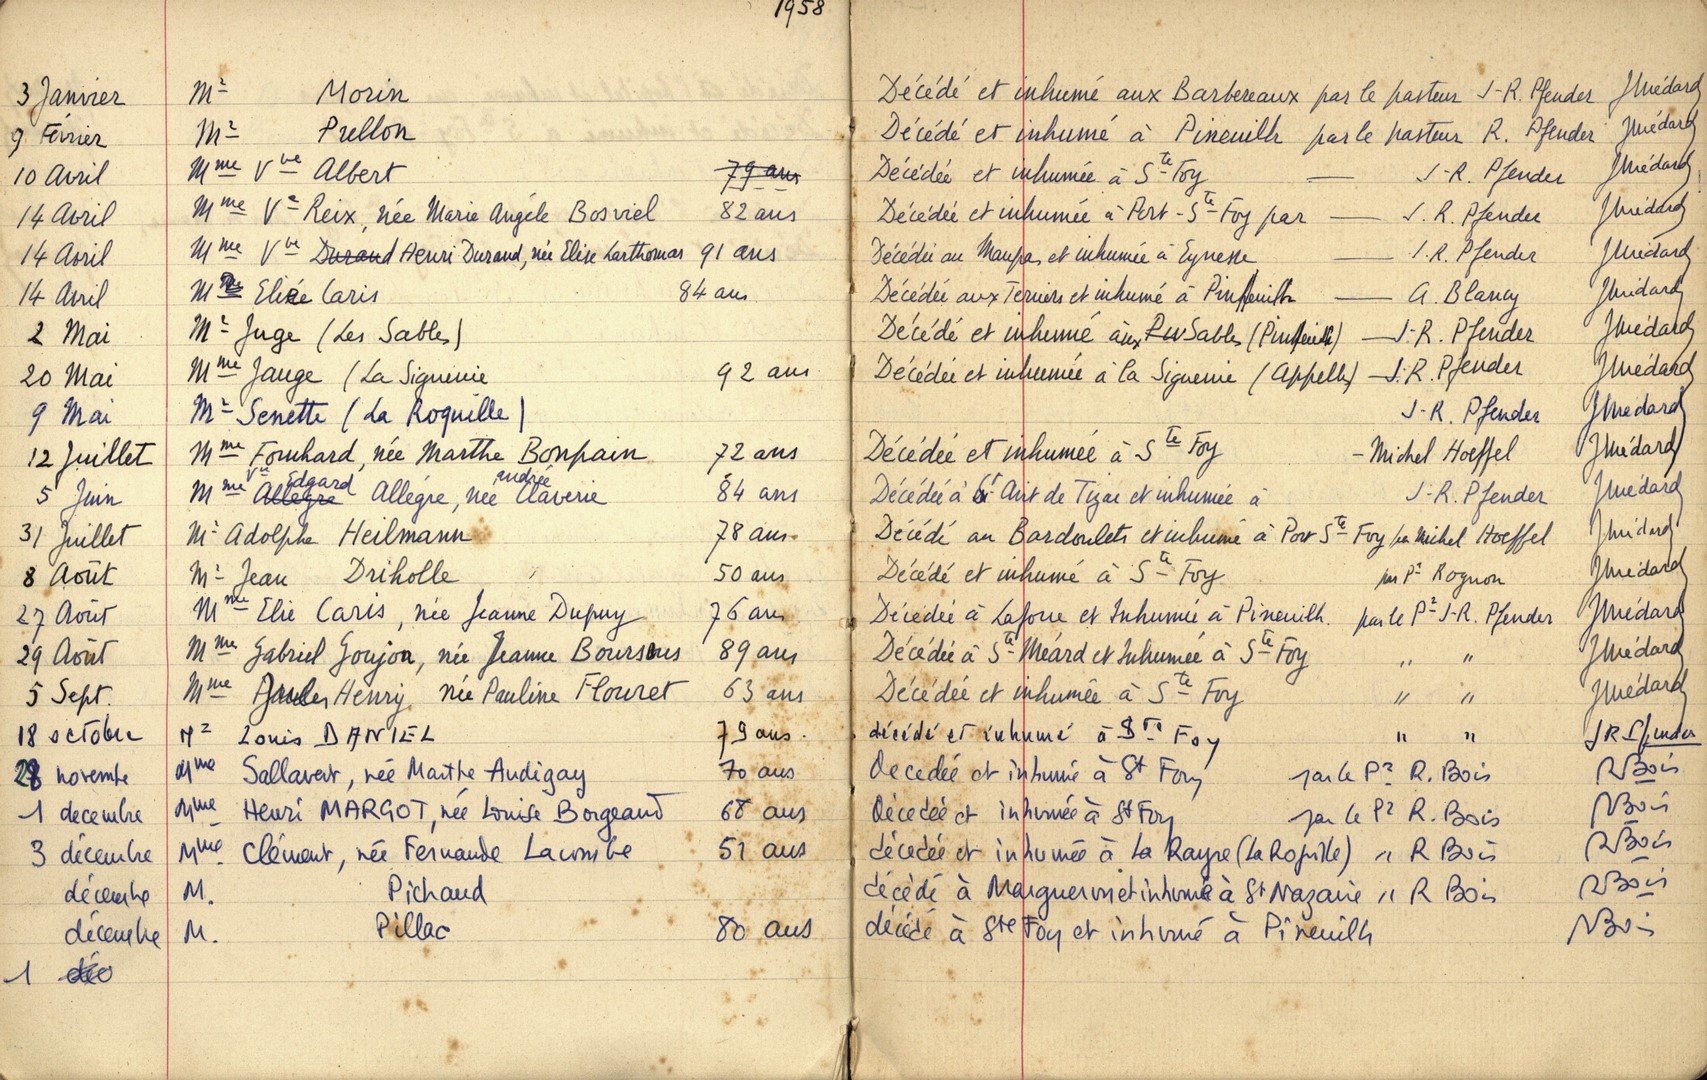 1958
3 Janvier Mr Morin Décédé et inhumé aux Barbereaux par le pasteur J-R. Pfender JMédard
9 Février Mr Prellon Décédé et inhumé à Pineuilh par le pasteur R. Pfender JMédard
10 Avril Mme Vve Albert 79 ans Décédée et inhumée à Ste Foy — J-R. Pfender JMédard
14 Avril Mme Ve Reix, née Marie Angèle Bosviel 82 ans Décédée et inhumée à Port-Ste Foy par — J.R. Pfender JMédard
14 Avril Mme Vve Durand Henri Durand, née Elise Larthomas 91 ans Décédée au Maupas et inhumée à Eynesse — J.R. Pfender JMédard
14 Avril M Elisée Caris 84 ans Décédée aux Terriers et inhumé à Pineuilh — A. Blancy JMédard
2 Mai Mr Juge (Les Sables) Décédé et inhumé aux Sables (Pineuilh) — J-R. Pfender JMédard
20 Mai Mme Jauge (La Siguenie 92 ans Décédée et inhumée à la Siguenie (Appelles) — J.R. Pfender JMédard
9 Mai Mr Senette (La Roquille) J-R. Pfender JMédard
12 Juillet Mme Fonhard, née Marthe Bonpain 72 ans Décédée et inhumée à Ste Foy - Michel Hoeffel JMédard
5 Juin Mme Vve Allègre Edgard Allègre, née Andrée Claverie 84 ans Décédée à St Ant de Tizac et inhumée à J-R. Pfender JMédard
31 Juillet Mr Adolphe Heilmann 78 ans. Décédé au Bardoulets et inhumé à Port Ste Foy par Michel Hoeffel JMédard
8 Août Mr Jean Driholle 50 ans Décédé et inhumé à Ste Foy par Pr Rognon JMédard
27 Août Mme Elie Caris, née Jeanne Dupuy 76 ans Décédée à Laforce et Inhumée à Pineuilh. par le Pr J-R. Pfender JMédard
29 Août Mme Gabriel Goujon, née Jeanne Boursous 89 ans Décédée à St Méard et Inhumée à Ste Foy " " JMédard
5 Sept. Mme Jules Henry née Pauline Flouret 63 ans Décédée et inhumée à Ste Foy " " JMédard
18 octobre Mr Louis DANIEL 79 ans. décédé et inhumé à Ste Foy " " JR Pfender
28 novembre Mme Sallavert, née Marthe Audigay 70 ans Decedée et inhumé à St Foy par le Pr R. Bois RBois
1 decembre Mme Henri MARGOT, née Louise Borgeaud 68 ans Décedée et inhumée à St Foy par le Pr R. Bois RBois
3 décembre Mme Clément, née Fernande Lacombe 51 ans décedée et inhumée à La Rayre (La Roquille) " R Bois RBois
décembre M. Pichaud décédé à Margueron et inhumé à St Nazaire " R Bois RBois
décembre M. Pillac 80 ans décédé à Ste Foy et inhumé à Pineuilh RBois
1 déc